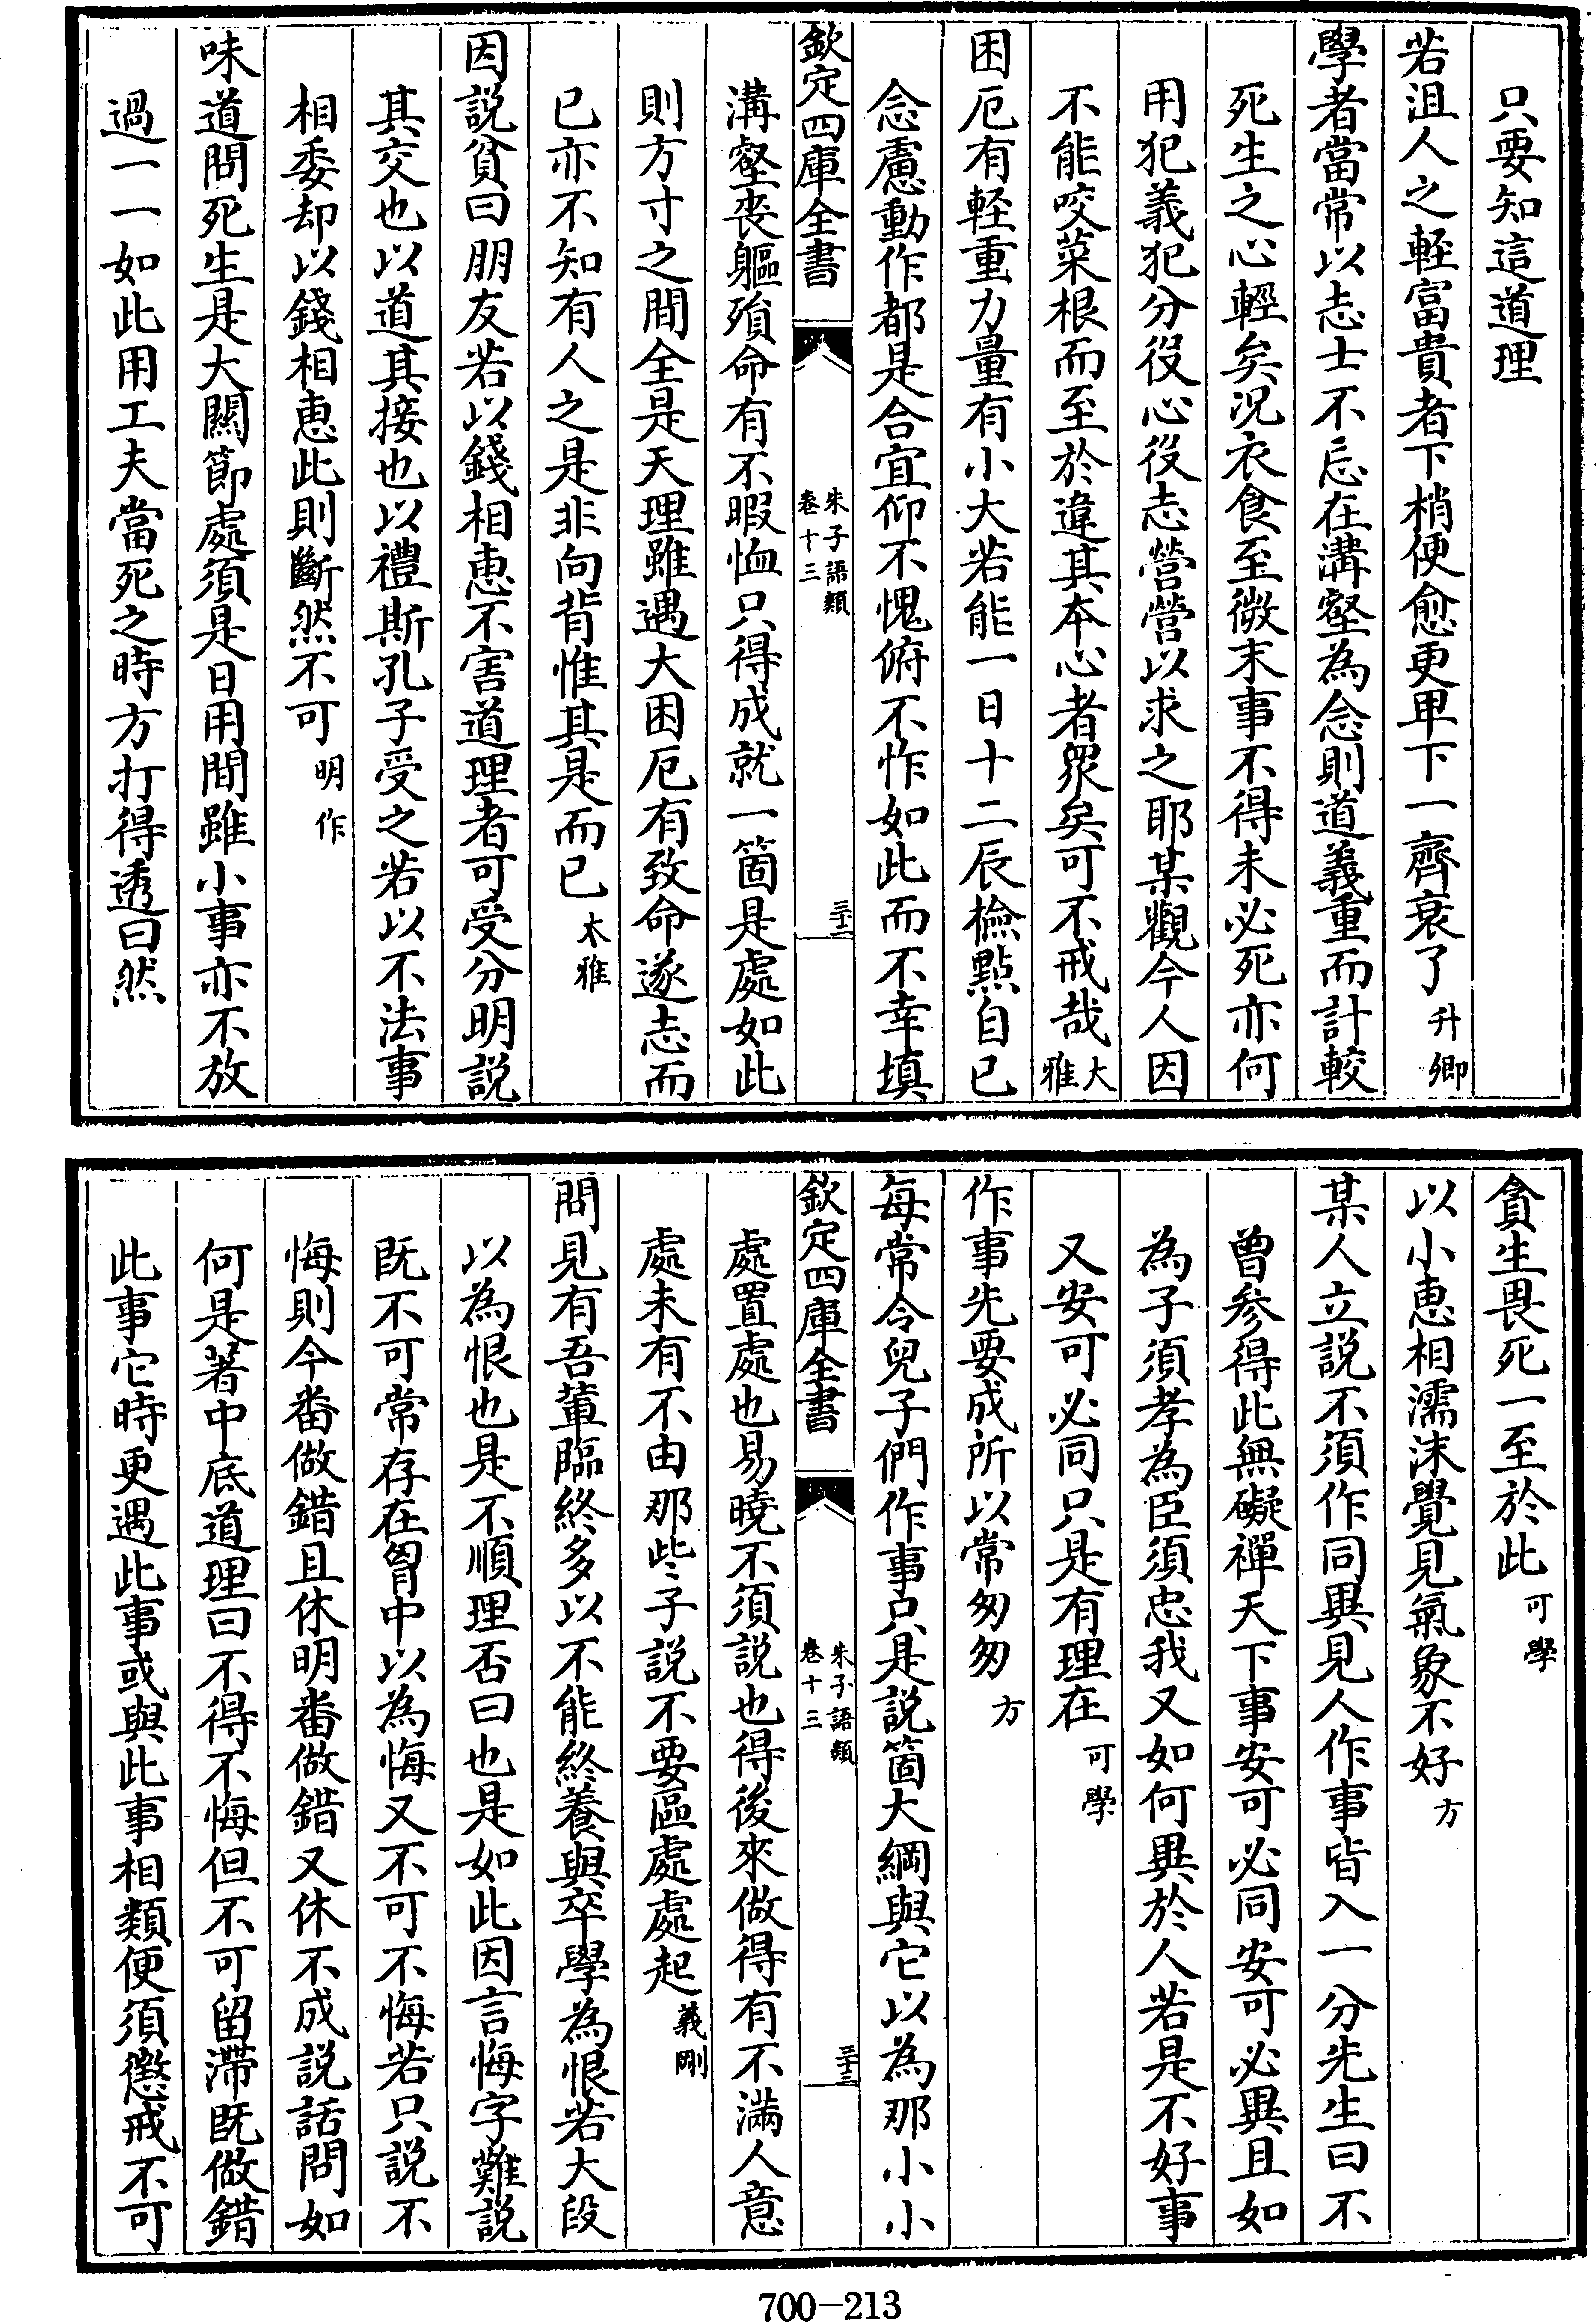 只要知這道理
若沮人之輕富貴者下梢便愈更卑下一齊衰了升卿
學者當常以志士不忘在溝壑為念則道義重而計較
死生之心輕矣況衣食至微末事不得未必死亦何
用犯義犯分役心役志營營以求之耶某觀今人因
不能咬菜根而至於違其本心者衆矣可不戒哉大雅
困厄有輕重力量有小大若能一日十二辰檢點自己
念慮動作都是合宜仰不愧俯不怍如此而不幸填
欽定四庫全書 朱子語類卷十三 三十二
溝壑喪軀殞命有不暇恤只得成就一箇是處如此
則方寸之間全是天理雖遇大困厄有致命遂志而
已亦不知有人之是非向背惟其是而已木雅
因説貧曰朋友若以錢相惠不害道理者可受分明説
其交也以道其接也以禮斯孔子受之若以不法事
相委却以錢相惠此則斷然不可明作
味道問死生是大關節處須是日用間雖小事亦不放
過一一如此用工夫當死之時方打得透曰然
貪生畏死一至於此可學
以小惠相濡沫覺見氣象不好方
某人立説不須作同異見人作事皆入一分先生曰不
曽參得此無礙禪天下事安可必同安可必異且如
為子須孝為臣須忠我又如何異於人若是不好事
又安可必同只是有理在可學
作事先要成所以常匆匆方
每常令兒子們作事只是説箇大綱與它以為那小小
欽定四庫全書 朱子語類卷十三 三十三
處置處也易曉不須説也得後來做得有不滿人意
處未有不由那些子説不要區處處起義剛
問見有吾輩臨終多以不能終養與卒學為恨若大段
以為恨也是不順理否曰也是如此因言悔字難説
既不可常存在胷中以為悔又不可不悔若只説不
悔則今番做錯且休明番做錯又休不成説話問如
何是著中底道理曰不得不悔但不可留滯既做錯
此事它時更遇此事或與此事相類便須懲戒不可
700-213